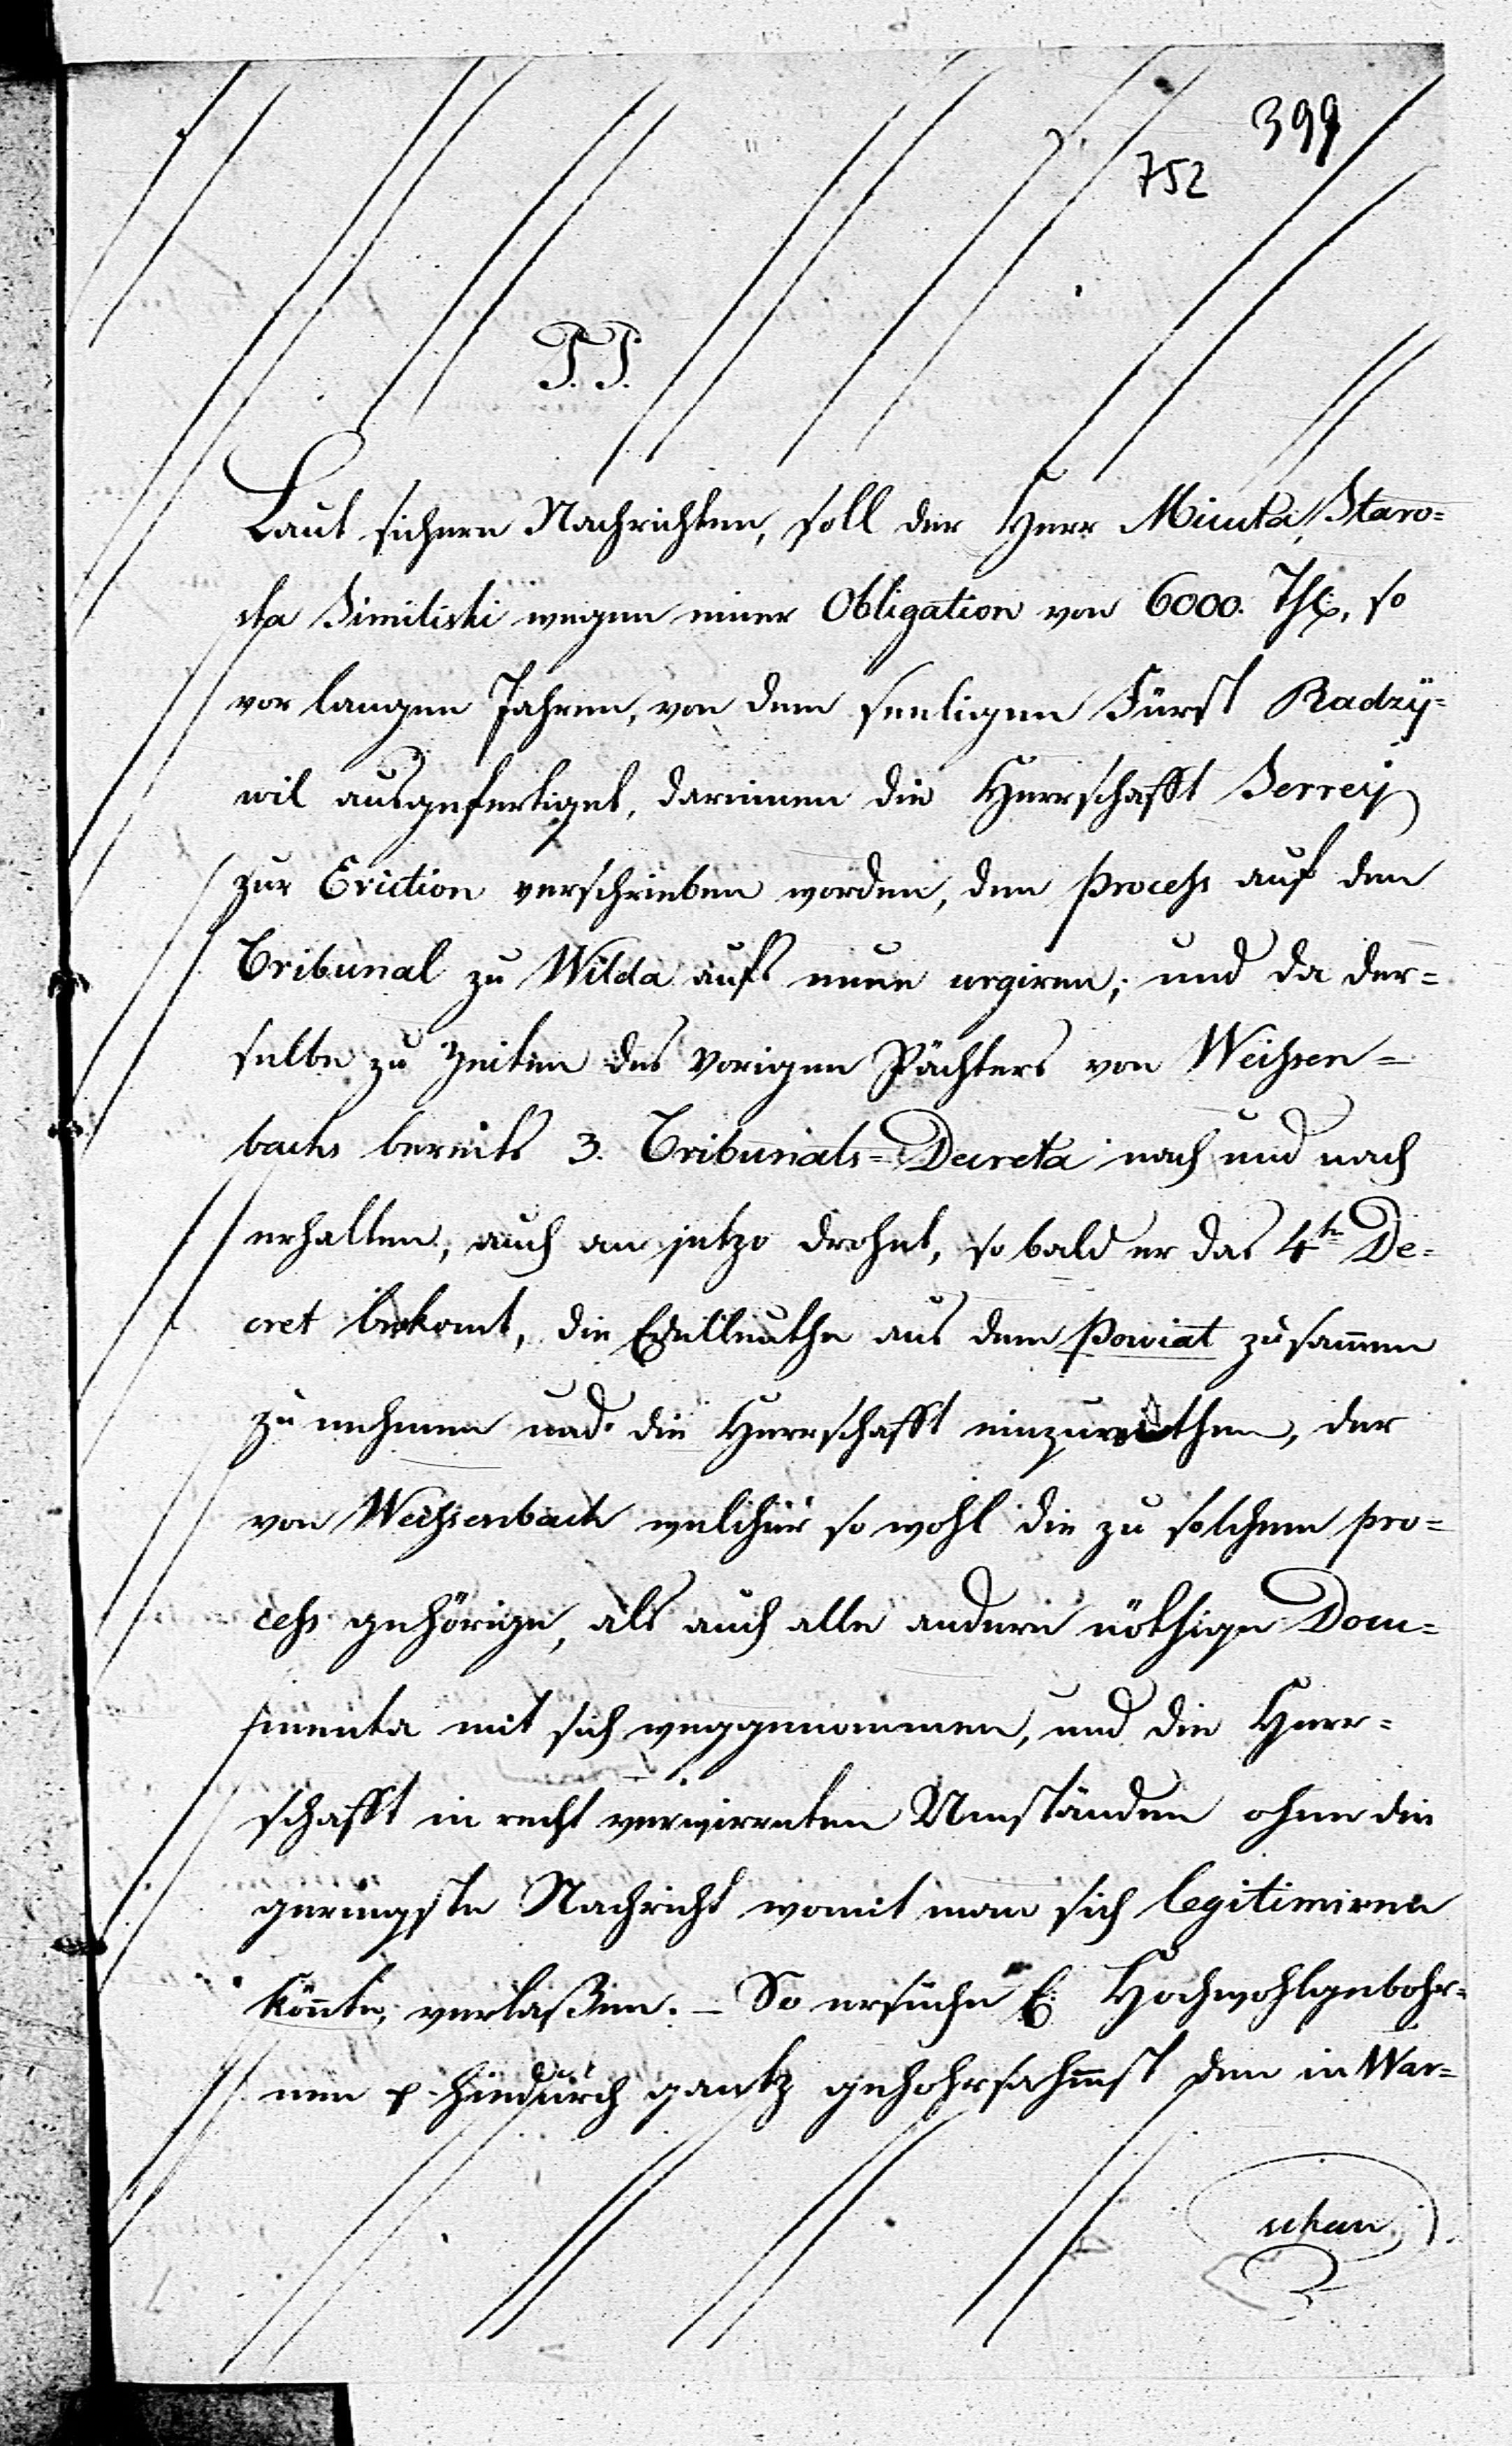 399
752
P. P.
Laut sichern Nachrichten, soll der Herr Micuta, Staro=
sta Similiski wegen einer Obligation von 6000. Thl., so
vor langen Jahren, von dem seeligen Fürst Radzÿ=
wil ausgefertiget, darinnen die Herrschafft Serrey
zur Eviction verschrieben worden, den Process auf dem
Tribunal zu Wilda aufs neue urgiren; und da der=
selbe zu Zeiten des vorigen Pächters von Weissen=
bachs bereits 3. Tribunals=Decreta nach und nach
erhalten, auch an jetzo drohet, so bald er das 4te De=
cret bekomt, die Edelleuthe aus dem Powiat zusammen
zu nehmen und die Herrschafft einzureithen, der
von Weissenbach welcher so wohl die zu solchem pro=
cess gehörige, als auch alle andere nöthige Docu=
menta mit sich weggenommen, und die Herr=
schafft in recht verwirreten Umständen ohne die
geringste Nachricht womit man sich legitimiren
könte, verlaßen. – So ersuche E. Hochwohlgebohr=
nen p. hiedurch gantz gehohrsahmst den in War=
schau